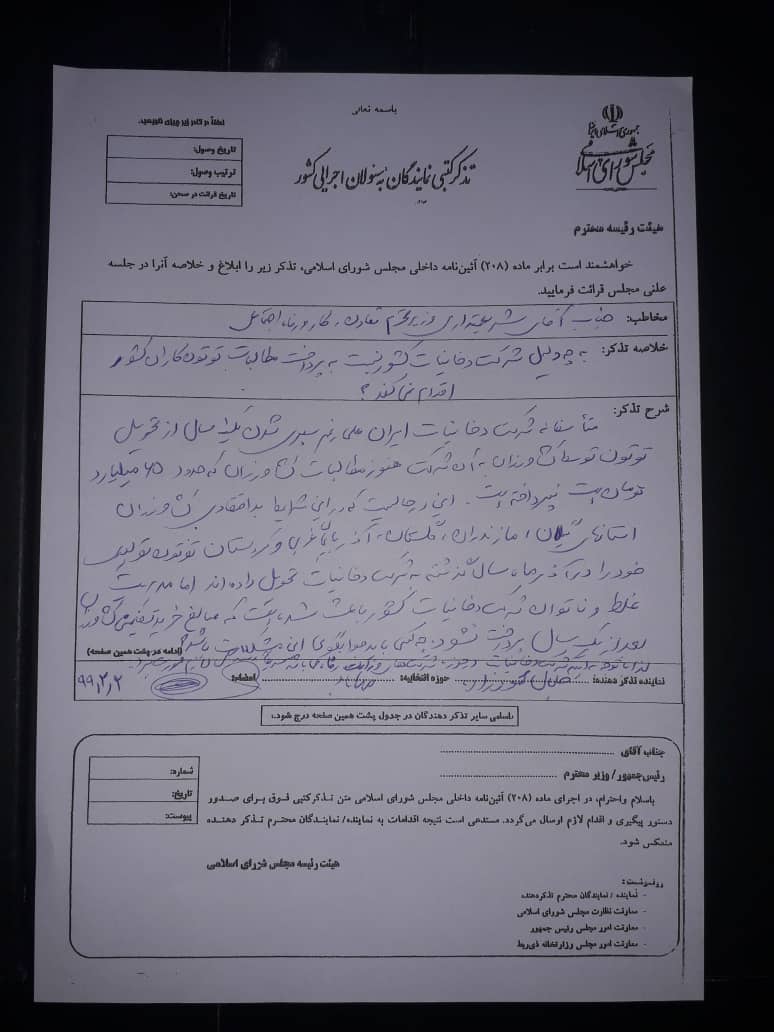 باسمه تعالی
جمهوری اسلامی ایران
مجلس شورای اسلامی
لطفاً در کادر زیر چیزی ننویسید.
تاریخ وصول:
ترتیب وصول:
تاریخ قرائت در صحن:
تذکر کتبی نمایندگان به مسئولان اجرایی کشور
هیئت رئیسه محترم
خواهشمند است برابر ماده (۲۰۸) آئین‌نامه داخلی مجلس شورای اسلامی، تذکر زیر را ابلاغ و خلاصه آنرا در جلسه
علنی مجلس قرائت فرمایید.
مخاطب: جناب آقای شریعتمداری وزیر محترم تعاون، کار و رفاه اجتماعی
خلاصه تذکر: به چه دلیل شرکت دخانیات کشور نسبت به پرداخت مطالبات توتون کاران کشور
اقدام نمی کند؟
شرح تذکر: متأسفانه شرکت دخانیات ایران علی رغم سپری شدن یک سال از تحویل
توتون توسط کشاورزان به آن شرکت هنوز مطالبات کشاورزان که حدود ۶۵ میلیارد
تومان است نپرداخته است. این در حالیست که در این شرایط بد اقتصادی کشاورزان
استانهای گیلان، مازندران، گلستان، آذربایجان غربی و کردستان توتون تولیدی
خود را در ماه سال گذشته به شرکت دخانیات تحویل داده اند اما مدیریت
غلط و ناتوان شرکت دخانیات کشور باعث شده است که مبالغ خرید کشاورزان
بعد از یک سال پرداخت نشود. چه کسی باید جوابگوی این مشکلات باشد؟
(ادامه در پشت همین صفحه)
نماینده تذکر دهنده: حوزه انتخابیه: امضاء: ۹۹/۲/۲
اسامی سایر تذکر دهندگان در جدول پشت همین صفحه درج شود.
جناب آقای
رئیس‌جمهور/ وزیر محترم
شماره:
تاریخ:
پیوست:
باسلام واحترام، در اجرای ماده (۲۰۸) آئین‌نامه داخلی مجلس شورای اسلامی متن تذکر کتبی فوق برای صدور
دستور پیگیری و اقدام لازم ارسال می‌گردد. مستدعی است نتیجه اقدامات به نماینده/ نمایندگان محترم تذکر دهنده
منعکس شود.
هیئت رئیسه مجلس شورای اسلامی
رونوشت:
- نماینده / نمایندگان محترم تذکردهنده
- معاونت نظارت مجلس شورای اسلامی
- معاونت امور مجلس رئیس جمهور
- معاونت امور مجلس وزارتخانه ذی‌ربط